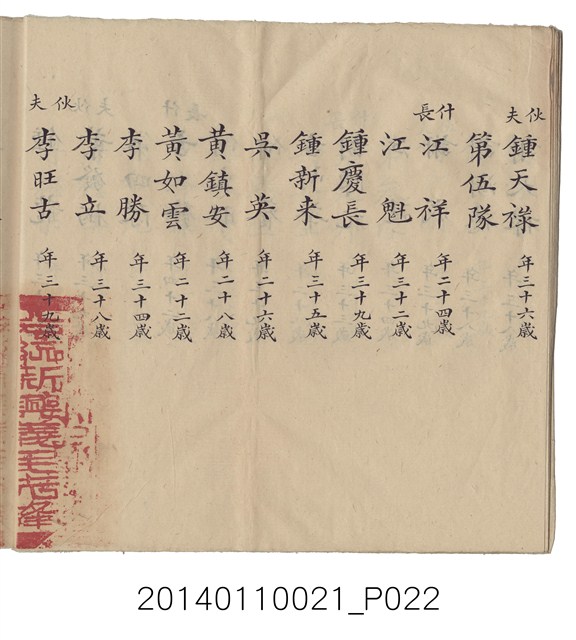 伙夫
鍾天祿 年三十六歲
第伍隊
什長
江祥 年二十四歲
江魁 年三十二歲
鍾慶長 年三十九歲
鍾新来 年三十五歲
吳英 年二十六歲
黃鎮安 年二十八歲
黃如雲 年二十二歲
李勝 年三十四歲
李立 年三十八歲
伙夫
李旺古 年三十九歲
20140110021_P022